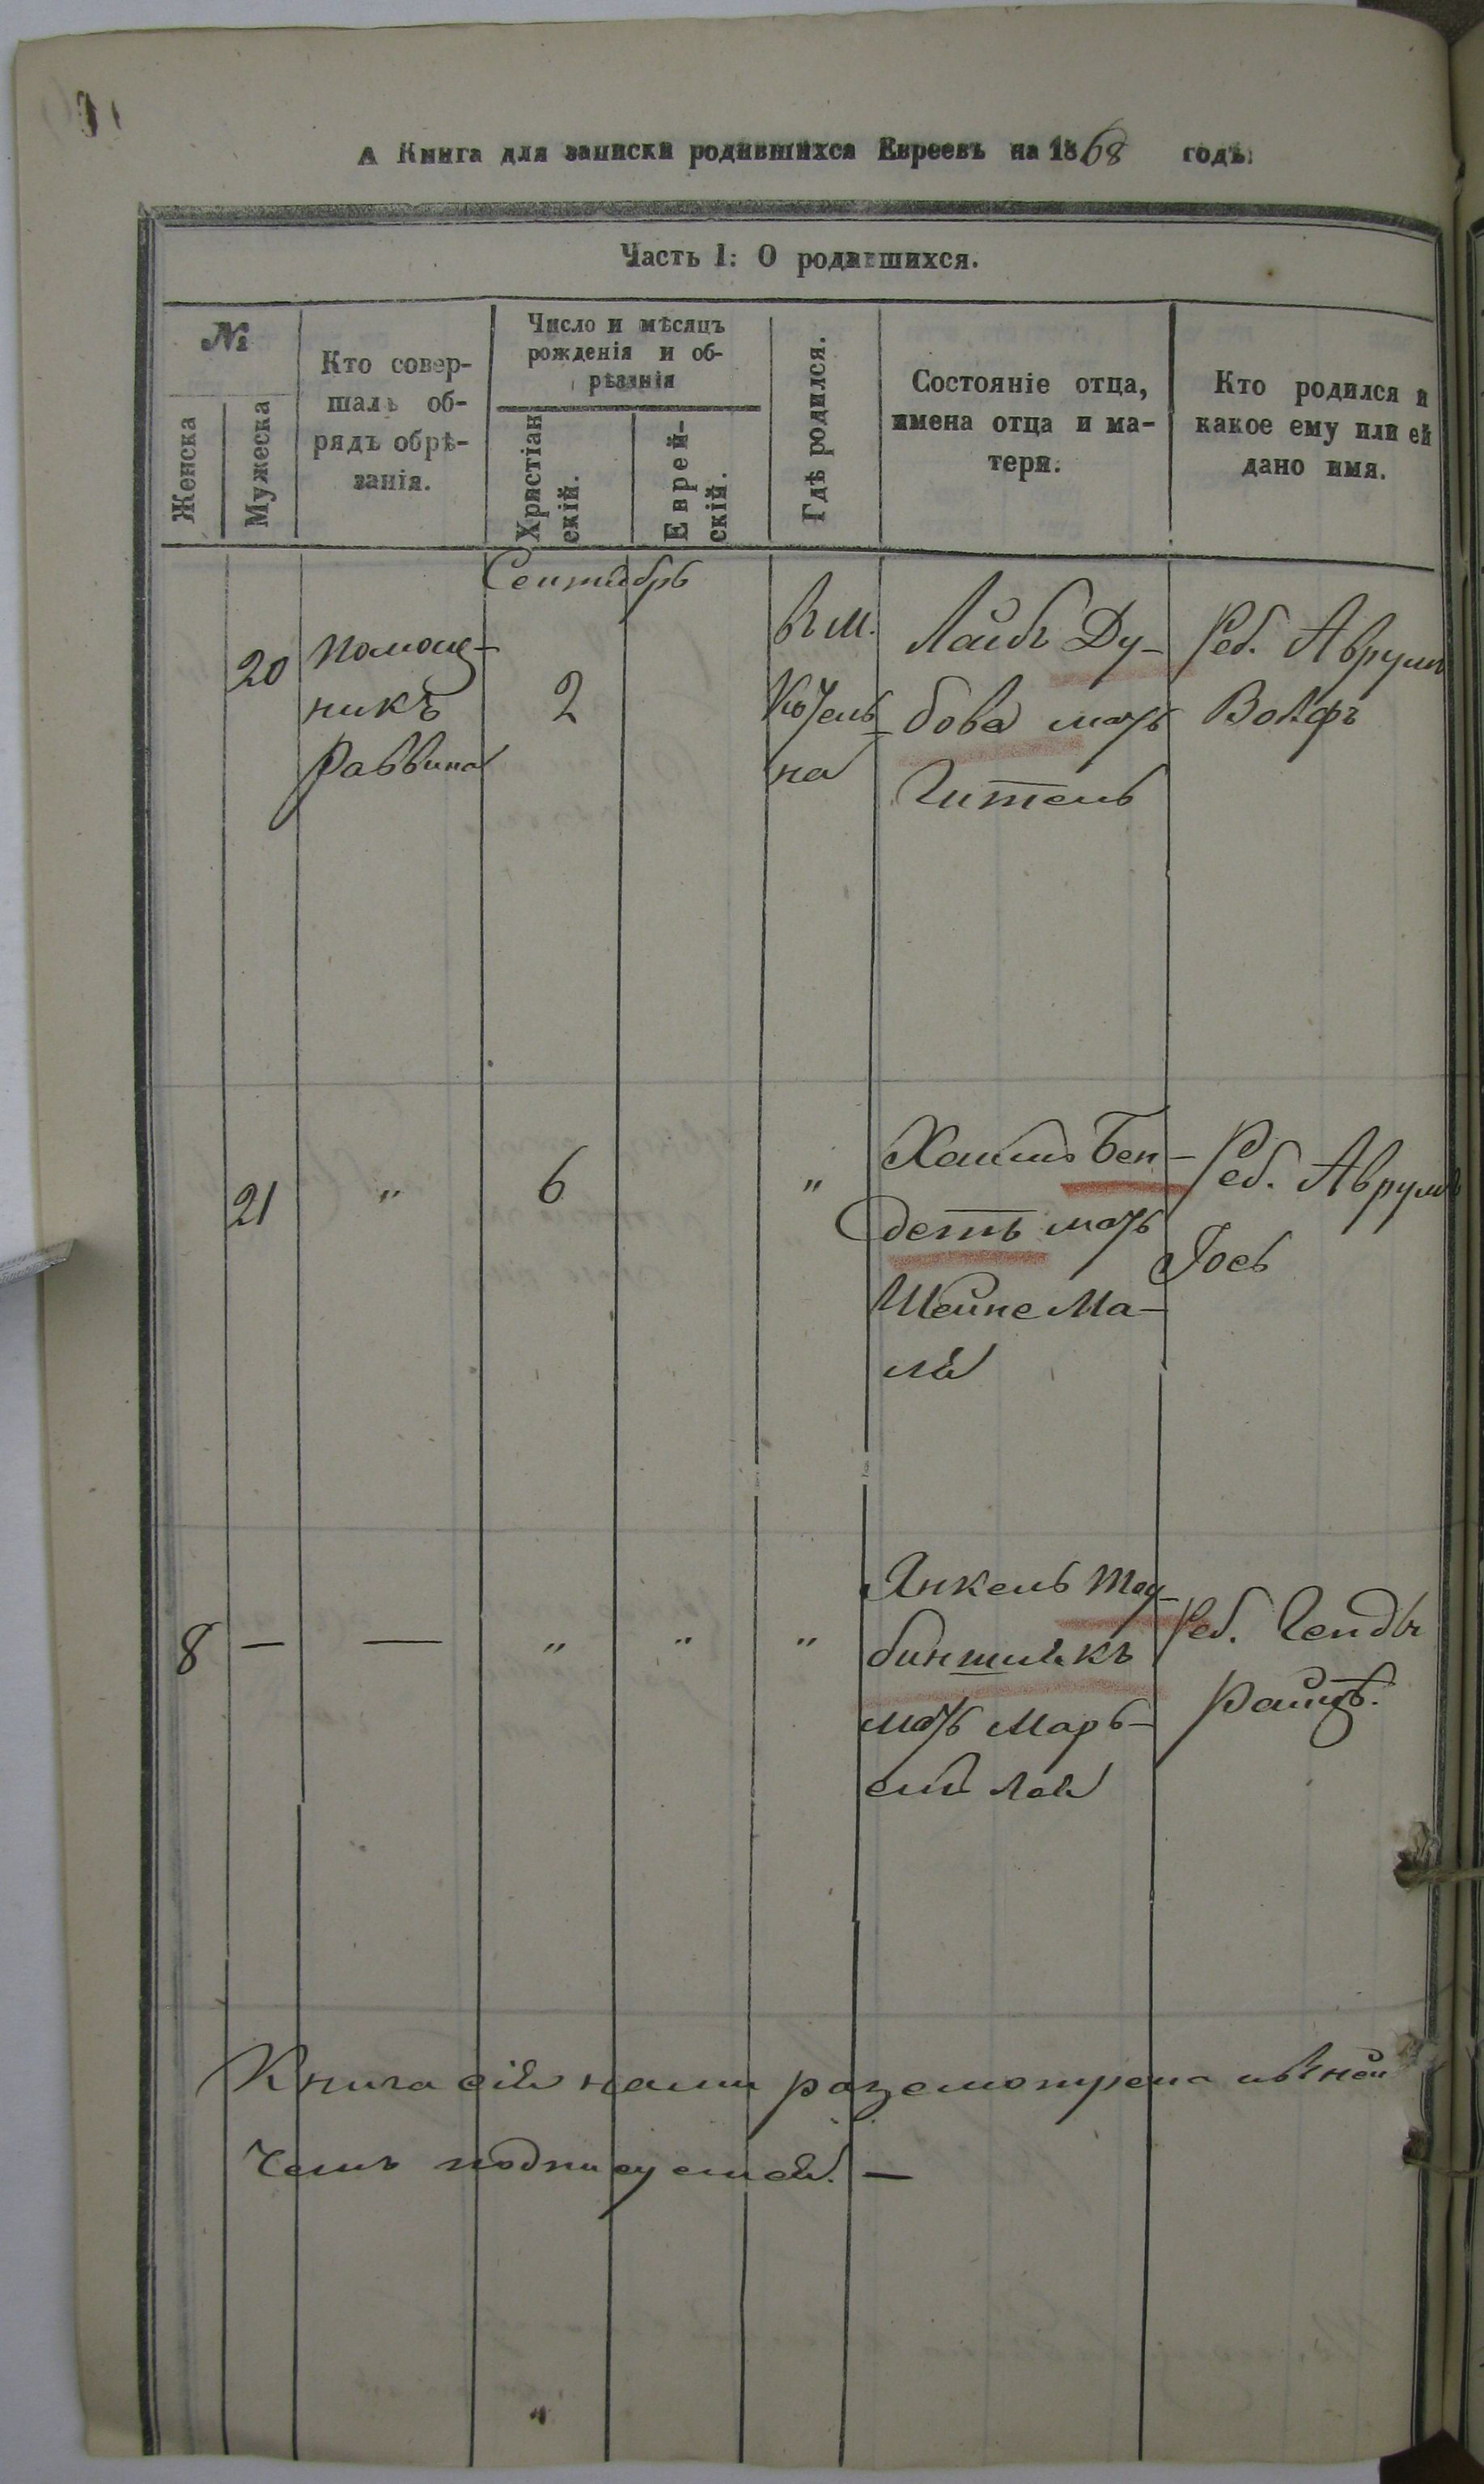 А Книга для записки родившихся Евреевъ на 1868 годъ:
Часть I: О родившихся.
№
Женска
Мужеска
Кто совер-
шалъ об-
рядъ обрѣ-
занія.
Число и мѣсяцъ
рожденія и об-
рѣзанія
Христіан
скій.
Еврей-
скій.
Гдѣ родился.
Состояніе отца,
имена отца и ма-
тери.
Кто родился и
какое ему или ей
дано имя.
Сентябрь
20
Помощ-
никъ
Раввина
2
В м.
Кутель-
на
Лайбъ Ду-
бова мать
Гитель
Реб. Аврумъ
Волфъ
21
"
6
"
Хаимъ Бен-
детъ мать
Шейне Ма-
ля
Реб. Аврумъ
Іось
8
—
—
"
"
"
Янкель Тау-
бинштикъ
мать Марь-
ем Лая
Реб. Гендя
Книга сія нами разсмотрена и въ ней
чемъ подписуемся. —